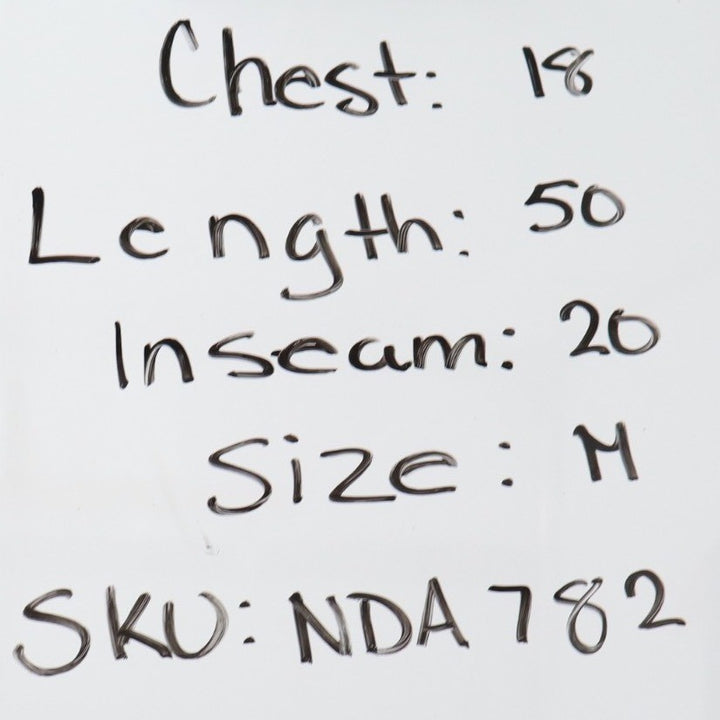 Chest: 18
Length: 50
Inseam: 20
Size: M
SKU: NDA782